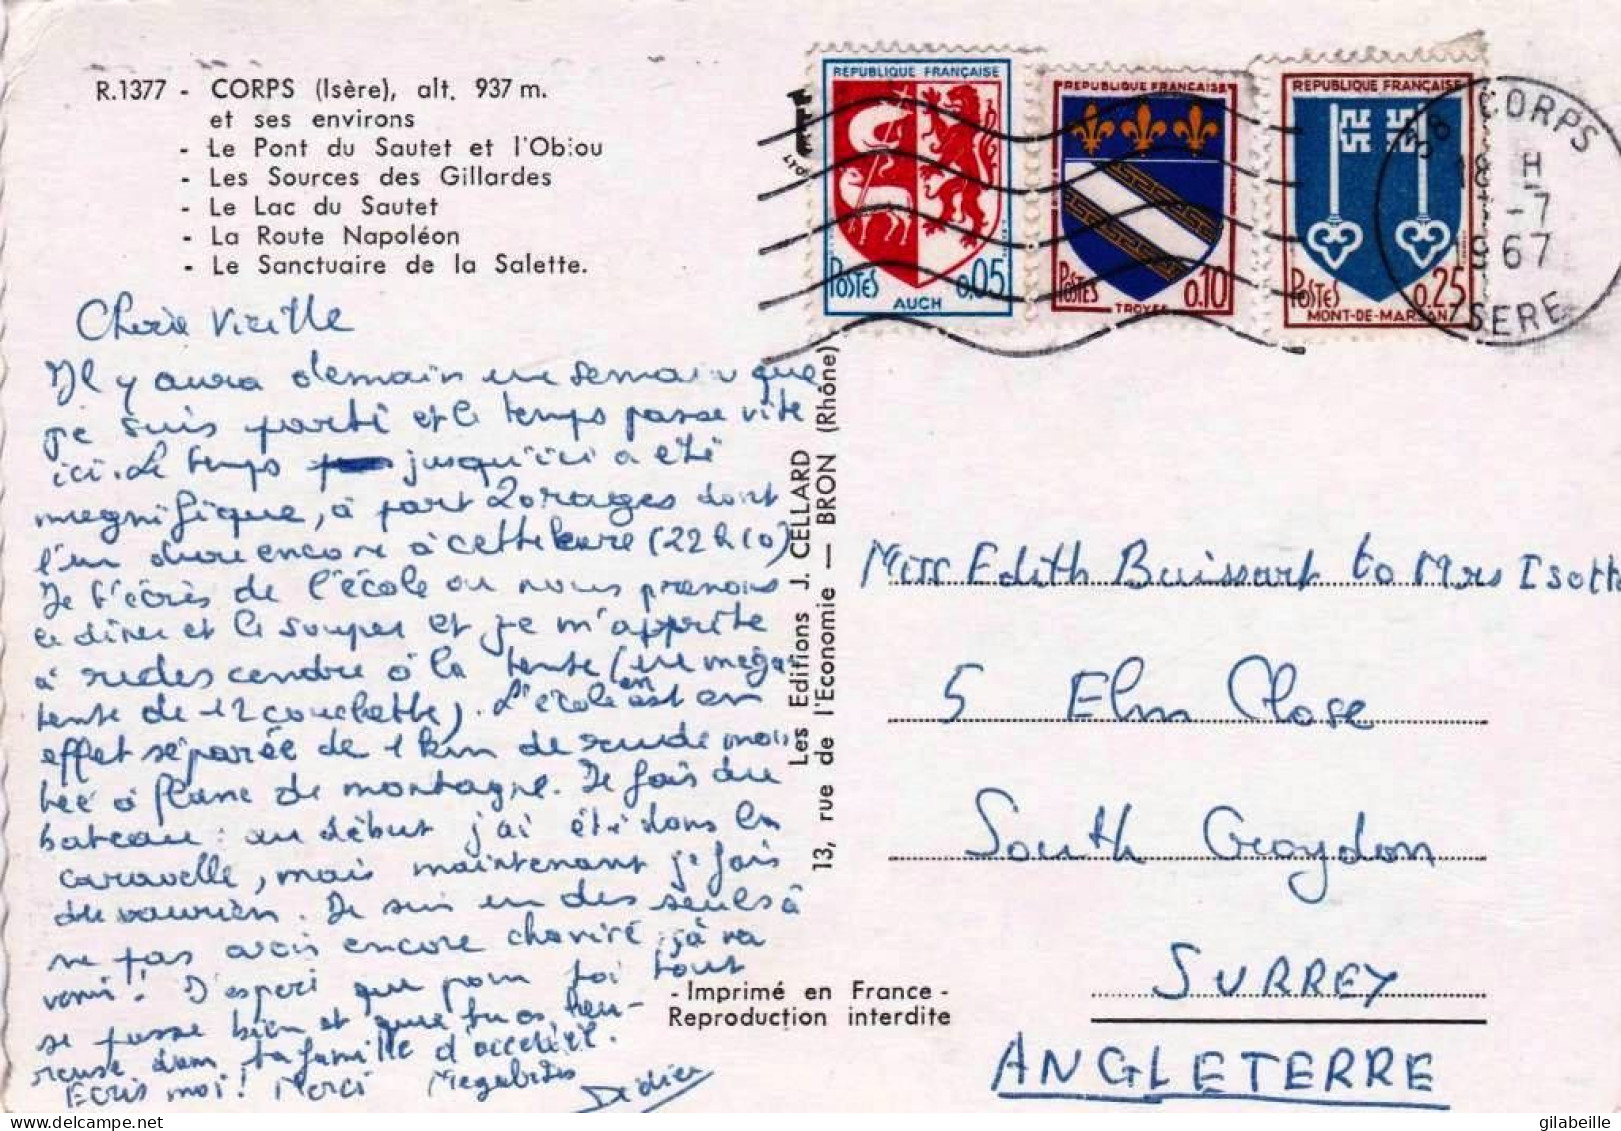 R.1377 - CORPS (Isère), alt. 937 m.
et ses environs
- Le Pont du Sautet et l'Obiou
- Les Sources des Gillardes
- Le Lac du Sautet
- La Route Napoléon
- Le Sanctuaire de la Salette.
RÉPUBLIQUE FRANÇAISE
POSTES 0,05
AUCH
REPUBLIQUE FRANÇAISE
POSTES 0,10
TROYES
RÉPUBLIQUE FRANÇAISE
POSTES 0,25
MONT-DE-MARSAN
38 CORPS
18 H
-7
1967
ISERE
Cherie Vieille
Il y aura demain une semaine que
je suis parti et le temps passe vite
ici. Le temps jusqu'ici a été
magnifique, à part 2 orages dont
l'un dure encore à cette heure (22 h 10)
Je t'écris de l'école ou nous prenons
le diner et le souper et je m'apprête
à redescendre à la tente (une méga-
tente de 12 couchette). L'école est en
effet séparée de 1 km de rude mon
tée à flanc de montagne. Je fais du
bateau : au début j'ai été dans la
caravelle, mais maintenant je fais
du vaurien. Je suis un des seuls à
ne pas avoir encore chaviré, ça va
venir! J'espère que pour toi tout
se passe bien et que tu es heu-
reuse dans ta famille d'accueil.
Ecris moi! Merci Megabises
Didier
Les Editions J. CELLARD
13, rue de l'Economie — BRON (Rhône)
- Imprimé en France -
Reproduction interdite
Miss Edith Buissart to Mrs Isott
5 Elm Close
South Croydon
SURREY
ANGLETERRE
gilabeille